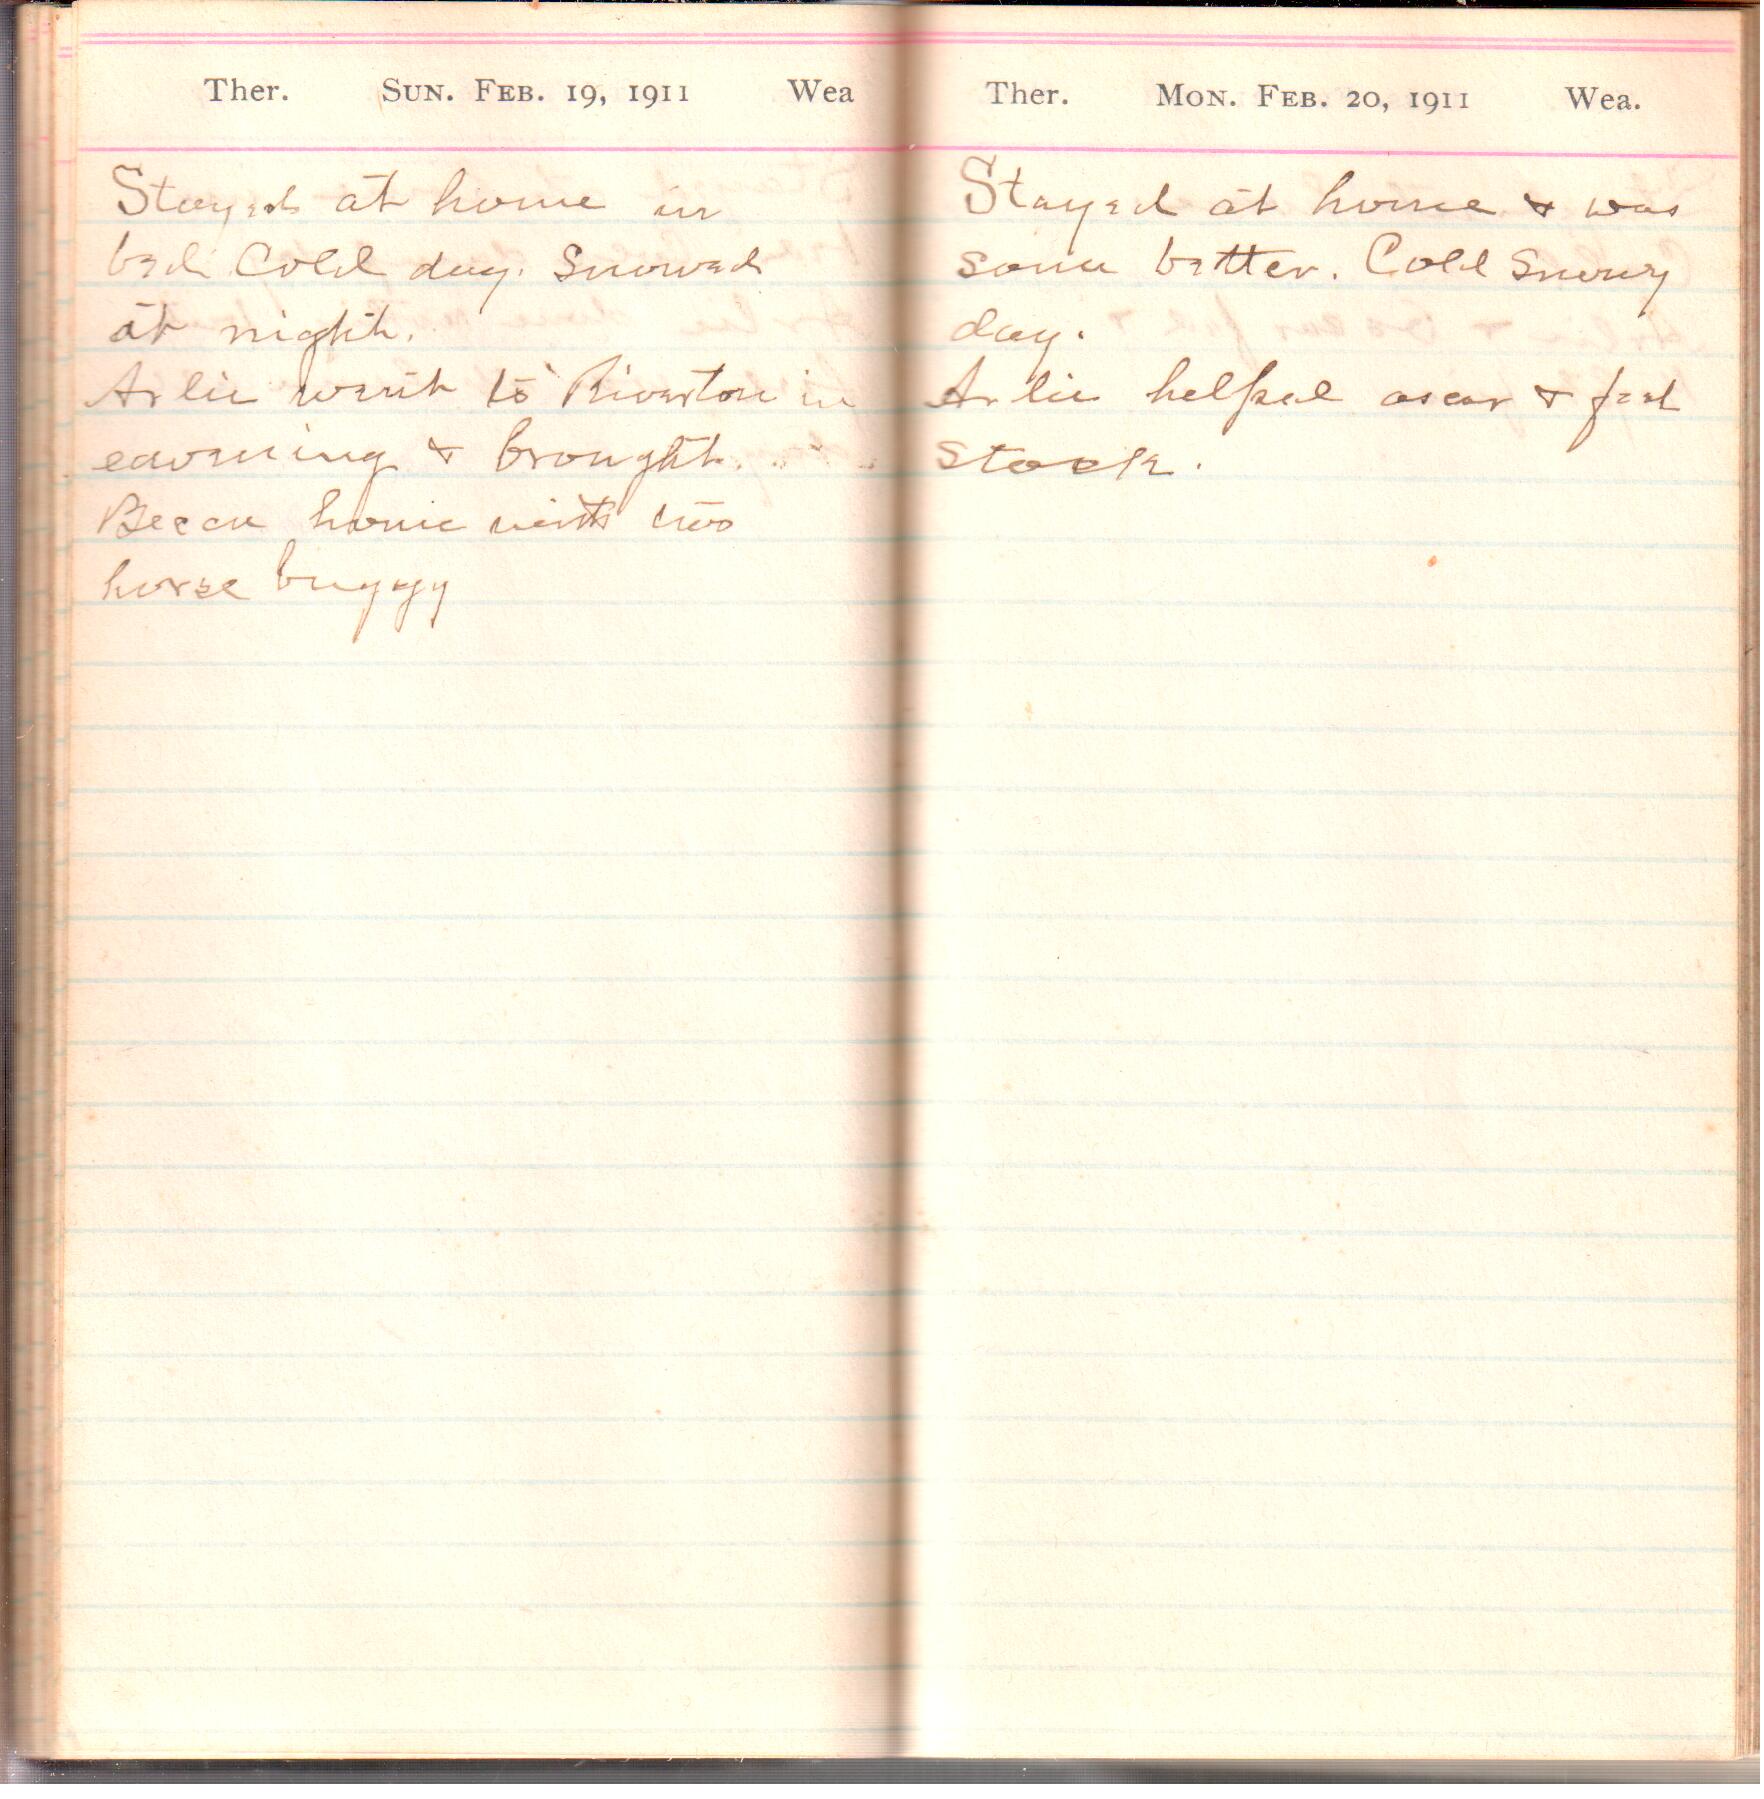 Ther. Sun. Feb. 19, 1911 Wea
Stayed at home in
bed. Cold day. Snowed
at night.
Arlie went to Riverton in
eavening & brought
home with two
horse buggy
Ther. Mon. Feb. 20, 1911 Wea.
Stayed at home & was
some better. Cold snowy
day.
Arlie helped oscar & feed
stock.